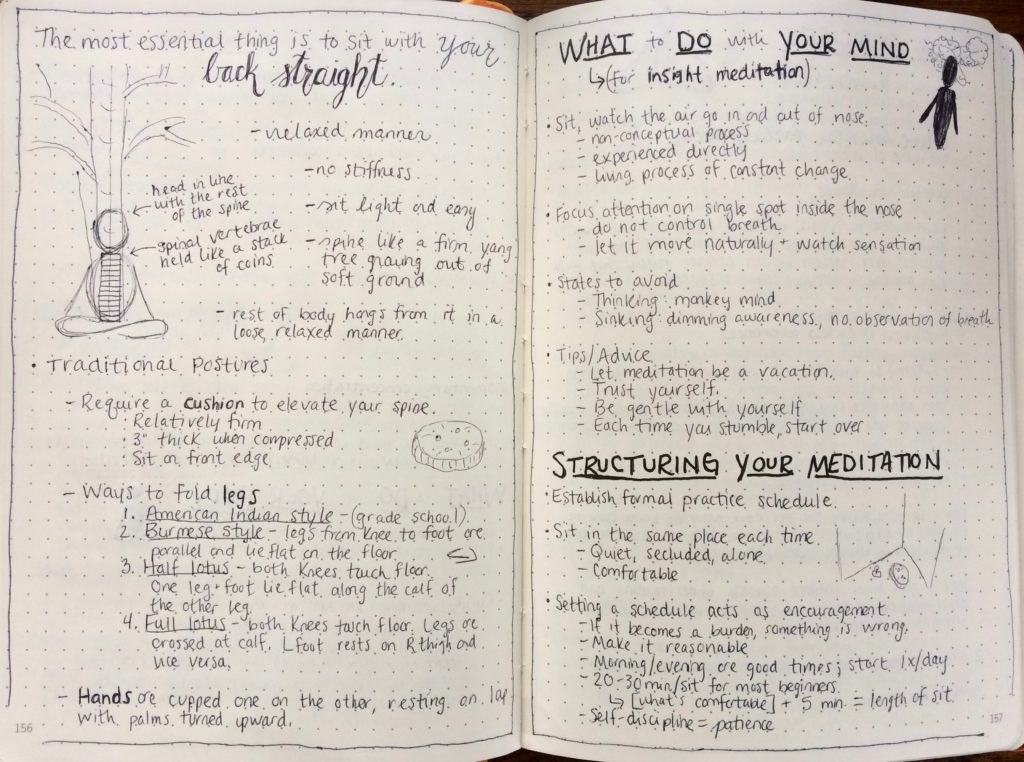 The most essential thing is to sit with your
back straight.
- relaxed manner
- no stiffness
head in line
with the rest
of the spine
- sit light and easy
spinal vertebrae
held like a stack
of coins
- spine like a firm, yang
tree growing out of
soft ground
- rest of body hangs from it in a
loose, relaxed manner.
• Traditional Postures
- Require a cushion to elevate your spine.
• Relatively firm
• 3" thick when compressed
• Sit on front edge
- Ways to fold legs
1. American Indian style - (grade school).
2. Burmese style - legs from knee to foot are
parallel and lie flat on the floor.
3. Half lotus - both knees touch floor.
One leg + foot lie flat along the calf of
the other leg
4. Full lotus - both knees touch floor. Legs are
crossed at calf. L foot rests on R thigh and
vice versa.
- Hands are cupped one on the other, resting on lap
with palms turned upward.
156
WHAT to DO with YOUR MIND
↳ (for insight meditation)
• Sit, watch the air go in and out of nose.
- non-conceptual process
- experienced directly
- living process of constant change.
• Focus attention on single spot inside the nose
- do not control breath
- let it move naturally + watch sensation
• States to avoid
- Thinking: monkey mind
- Sinking: dimming awareness, no observation of breath
• Tips/Advice
- Let meditation be a vacation.
- Trust yourself.
- Be gentle with yourself
- Each time you stumble, start over
STRUCTURING YOUR MEDITATION
• Establish formal practice schedule.
• Sit in the same place each time.
- Quiet, secluded, alone
- Comfortable
• Setting a schedule acts as encouragement.
- If it becomes a burden, something is wrong.
- Make it reasonable
- Morning/evening are good times; start 1x/day
- 20-30 min/sit for most beginners.
↳ [what's comfortable] + 5 min. = length of sit.
- Self-discipline = patience
157